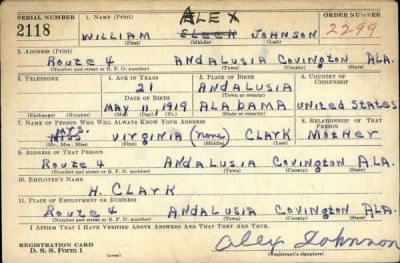 SERIAL NUMBER 1. NAME (Print) ALEX ORDER NUMBER
2118 WILLIAM ELECK JOHNSON 2299
(First) (Middle) (Last)
2. ADDRESS (Print)
Route 4 ANDALUSIA COVINGTON ALA.
(Number and street or R. F. D. number) (Town) (County) (State)
3. TELEPHONE 4. AGE IN YEARS 5. PLACE OF BIRTH 6. COUNTRY OF CITIZENSHIP
21 ANDALUSIA
DATE OF BIRTH (Town or county)
MAY 11, 1919 ALABAMA United States
(Exchange) (Number) (Mo.) (Day) (Yr.) (State or country)
7. NAME OF PERSON WHO WILL ALWAYS KNOW YOUR ADDRESS 8. RELATIONSHIP OF THAT PERSON
MRS. VIRGINIA (None) CLARK Mother
(Mr., Mrs., Miss) (First) (Middle) (Last)
9. ADDRESS OF THAT PERSON
Route 4 ANDALUSIA COVINGTON ALA.
(Number and street or R. F. D. number) (Town) (County) (State)
10. EMPLOYER'S NAME
H. CLARK
11. PLACE OF EMPLOYMENT OR BUSINESS
Route 4 ANDALUSIA COVINGTON ALA.
(Number and street or R. F. D. number) (Town) (County) (State)
I AFFIRM THAT I HAVE VERIFIED ABOVE ANSWERS AND THAT THEY ARE TRUE.
REGISTRATION CARD Alex Johnson
D. S. S. Form 1 (over) (Registrant's signature)